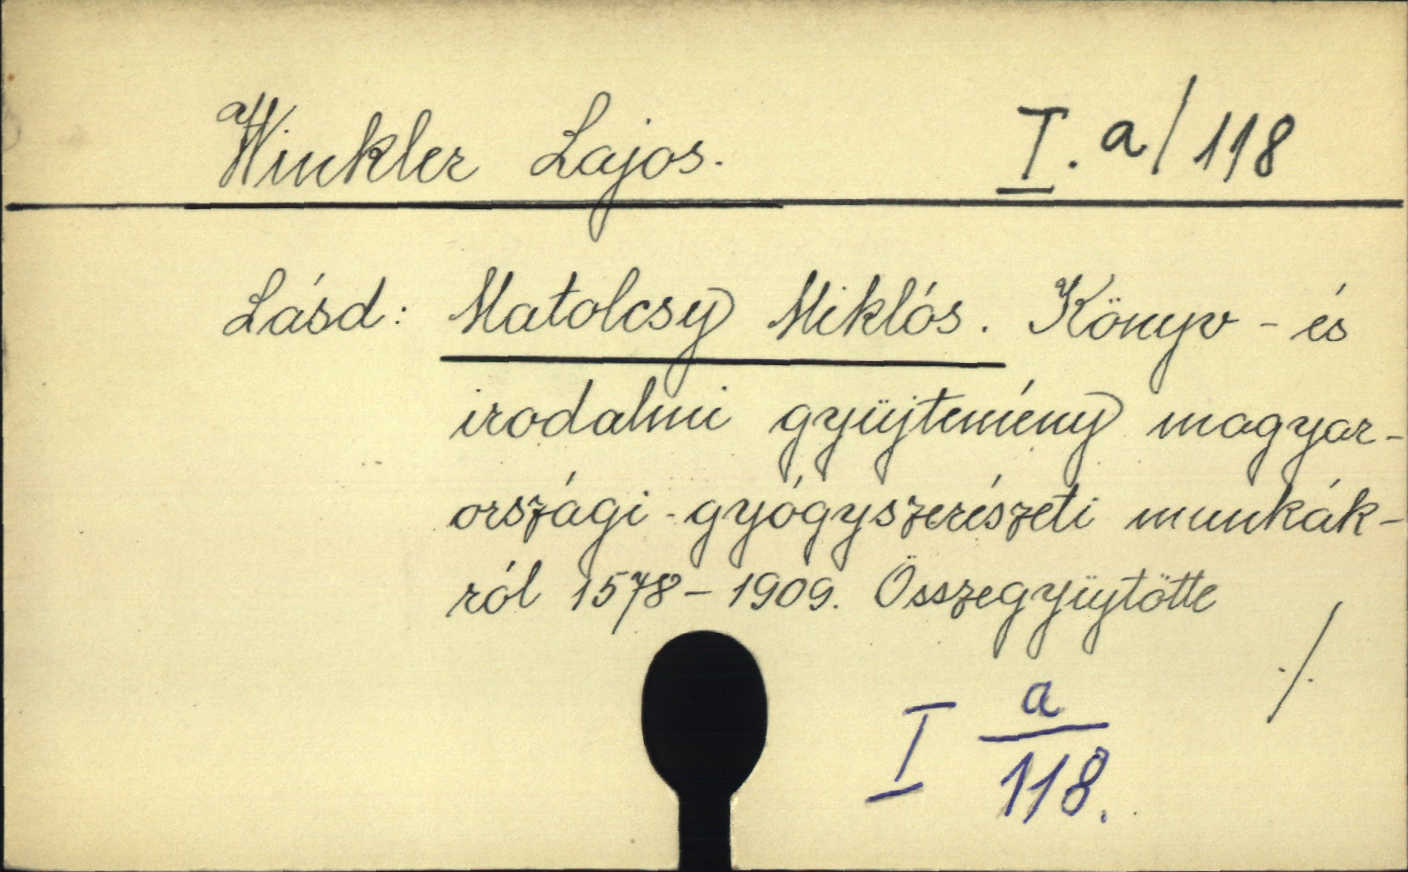 Winkler Lajos. I. a/118
Lásd: Matolcsy Miklós. Könyv- és
irodalmi gyüjtemény magyar-
országi gyógyszerészeti munkák-
ról 1578-1909. Összegyüjtötte
./.
I a
118.